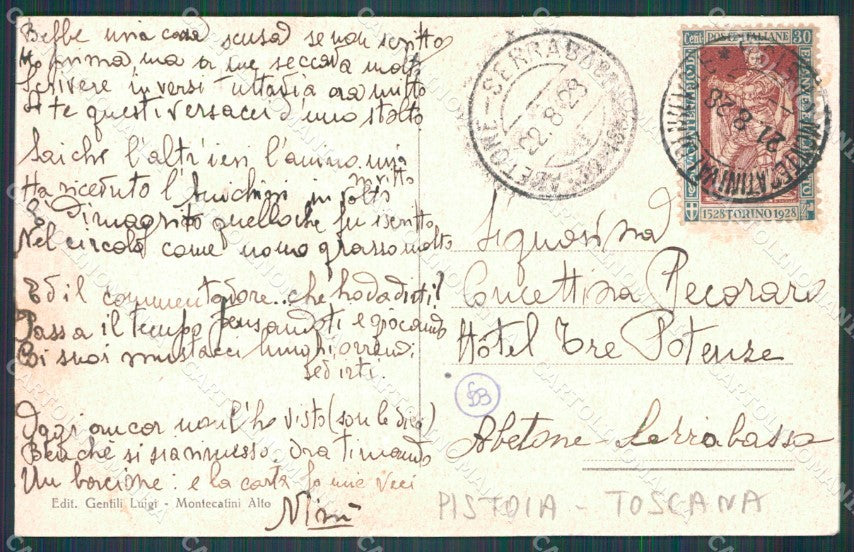 Bebbe una cosa scusa se non scritto
Ho prima, ma a me seccava molto
Scrivere in versi tuttavia ora mitto
A te questi versacci d'uno stolto
Sai che l'altr'ieri l'animo mio
Ha ricevuto l' in volto
E Dimagrito quello che fu iscritto
Nel circolo come uomo grasso molto
Ed il commentadore.. che ho da dirti?
Passa il tempo pensandoti e giocando
Coi suoi mustacci lunghi orrendi
ed irti.
Oggi ancor non l'ho visto (son le dieci)
Benchè si sia messo. Ora ti mando
Un bacione: e la carta fo mie veci
Ninì
Edit. Gentili Luigi - Montecatini Alto
ABETONE - SERRABASSA
22.8.28
MONTECATINI
21.8.28
Cent. POSTE ITALIANE 30
1528 TORINO 1928
Signorina
Concettina Pecoraro
Hôtel Tre Potenze
Abetone - Serrabassa
PISTOIA - TOSCANA
CARTOLINOMANIA